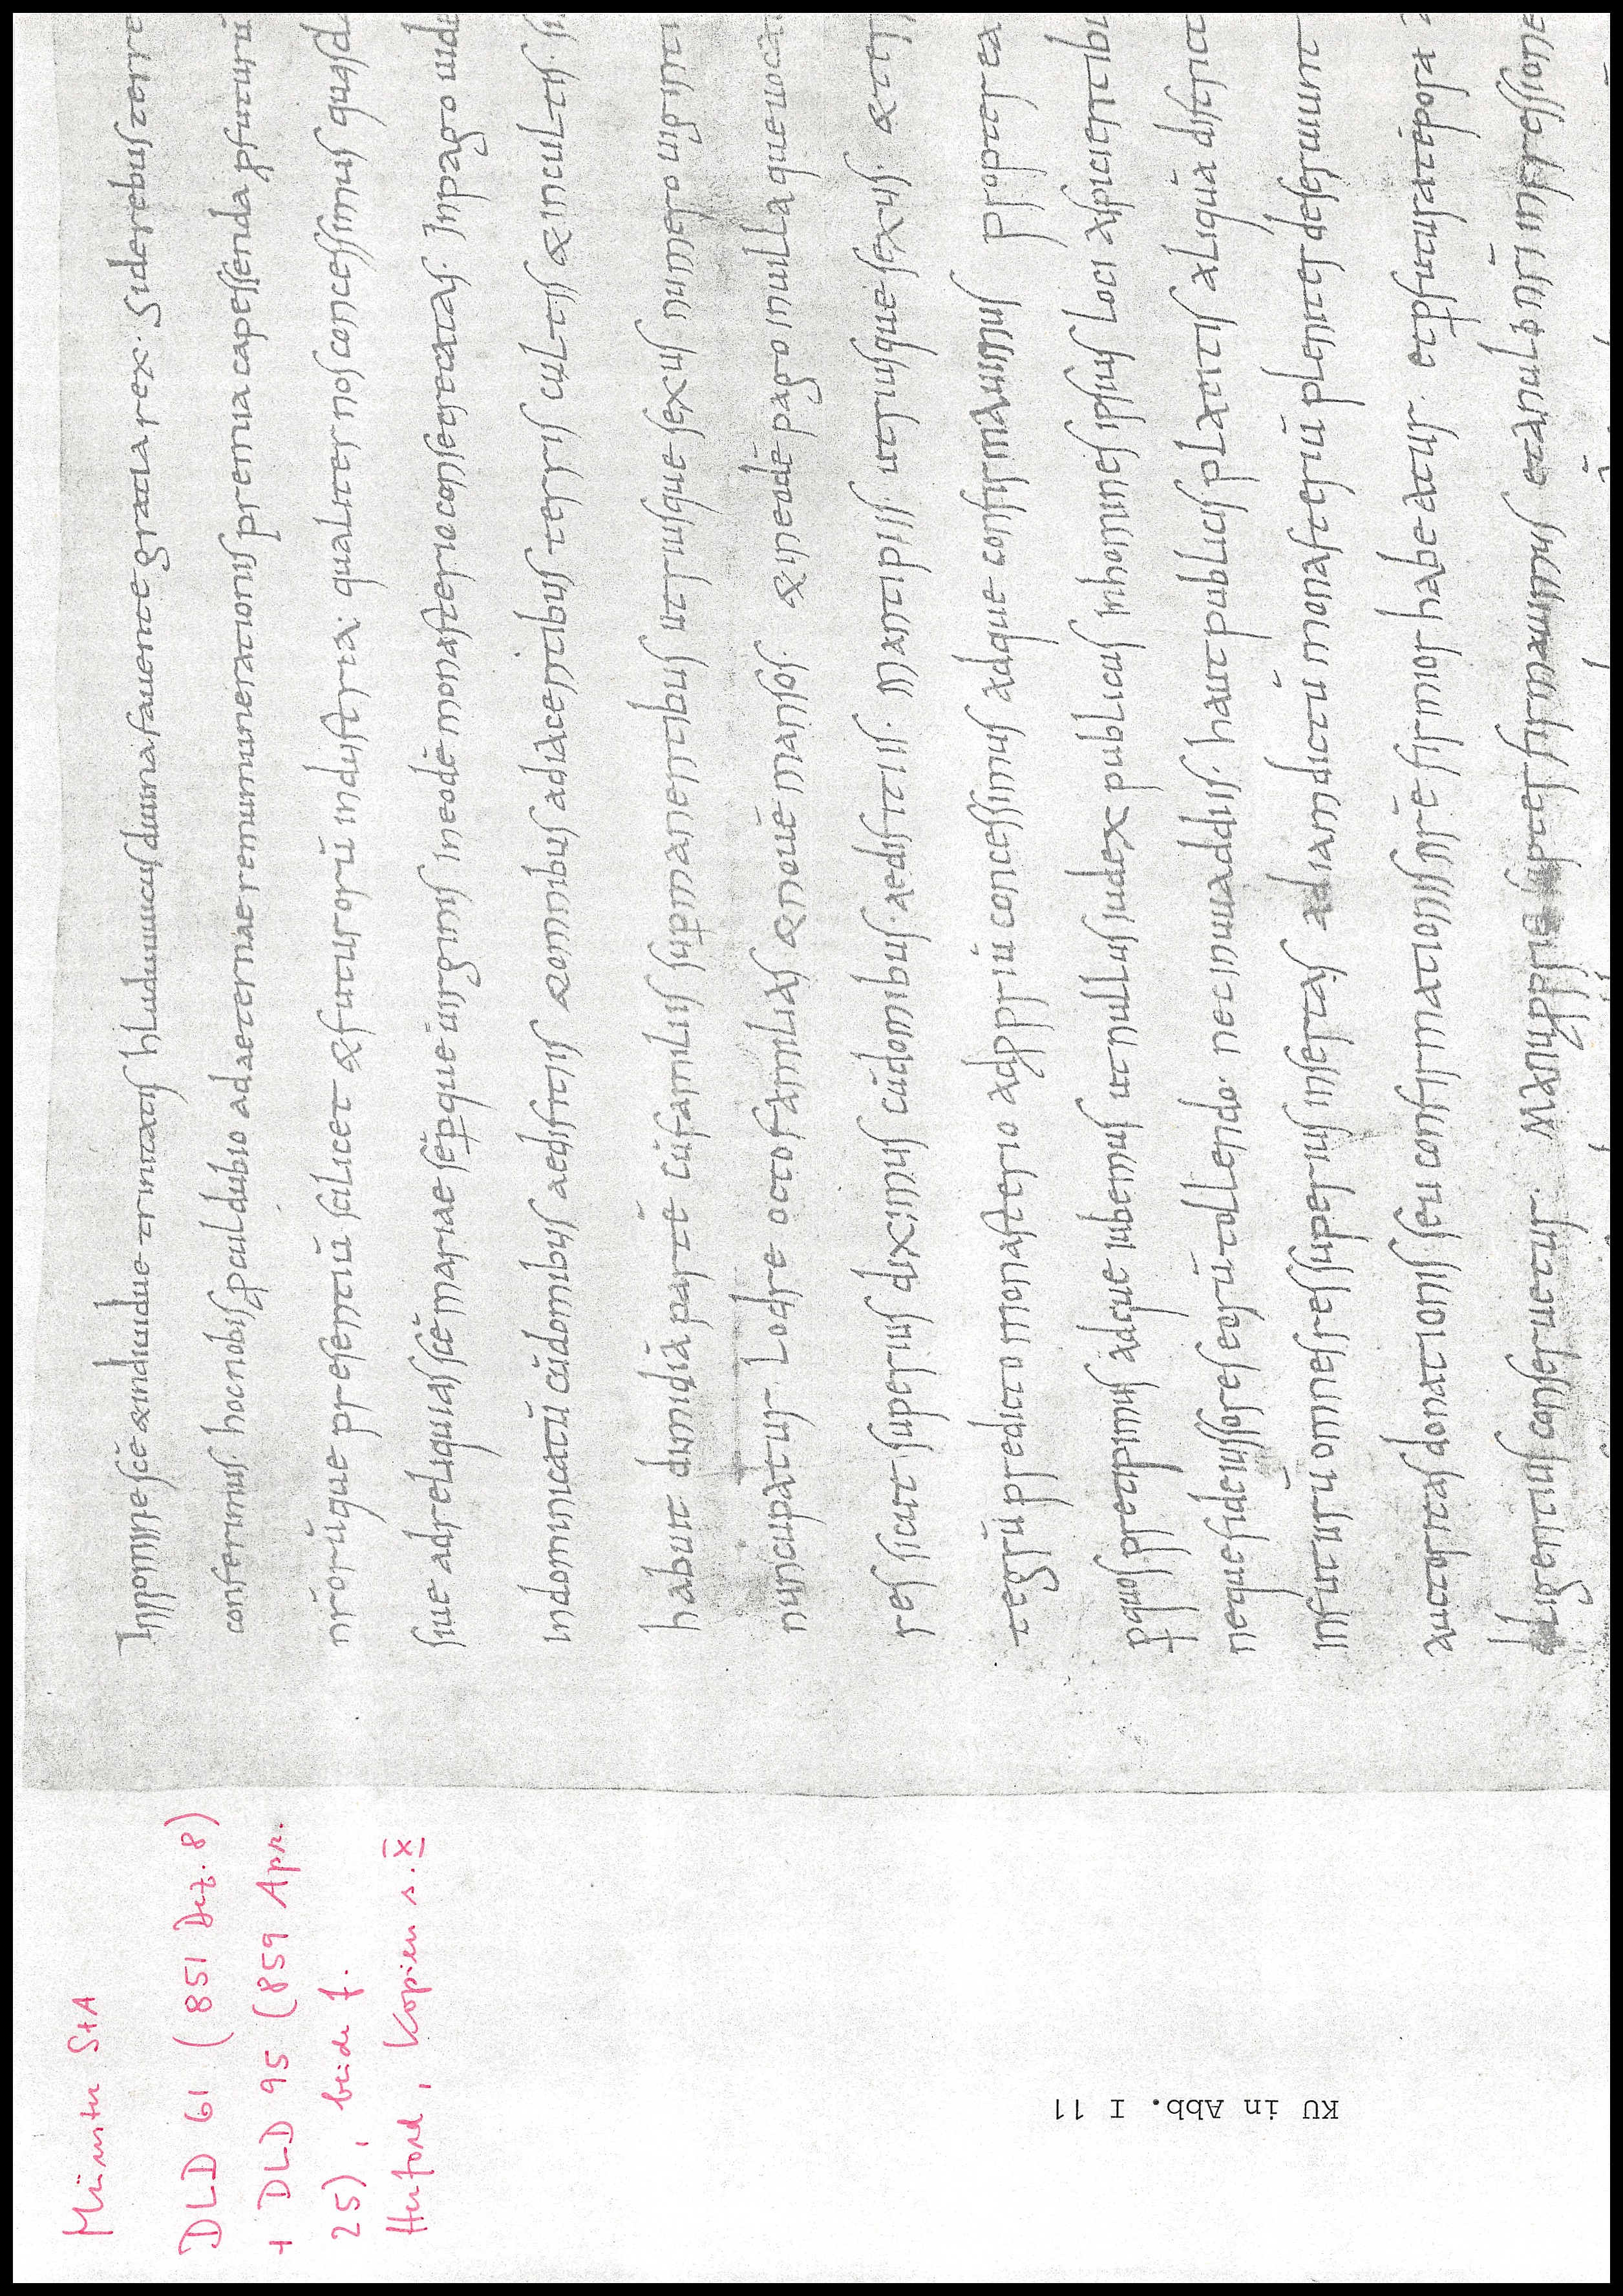 Münster StA
DLD 61 (851 Dez. 8)
+ DLD 95 (859 Apr.
25), beide f.
Herford, Kopien s. X
KU in Abb. I 11
In nomine scē & indiuidue trinitatis hludouuicus diuina fauente gratia rex. Si de rebus terre
conferimus. hoc nobis ꝓcul dubio ad aeternae remunerationis premia capessenda ꝓfuturū
nrōrūque presentiū scilicet & futurorū industria. qualiter nos concessimus quasda
siue ad reliquias scē mariae sēꝑque uirginis in eodē monasterio consecratas. In pago uide
indominicatū cū domibus aedificiis & omnibus adiacentibus terris cultis & incultis. si
habuit dimidiā partē cū familiis suꝑmanentibus utriusque sexus numero uiginti
nuncupatur Lodre octo familias & nouē mansos. & in eodē pago in uilla que uoca
res sicut superius diximus cū domibus. aedificiis. mancipiis. utriusque sexus. & ter
tegrū predicto monasterio ad ꝓpriū concessimus adque confirmauimus propterea
ꝑ quos precipimus adque iubemus ut nullus iudex publicus in homines ipsius loci aspicientibu
neque fideiussores eorū tollendo. nec in uuaddiis. haut publicus placitis aliquā distric
in futurū omnes res superius insertas ad iamdictū monasteriū pleniter deseruiunt
auctoritas donationis seu confirmationis nrē firmior habeatur. et ꝑ futura tēpora a
diligentius conseruetur. Manu ꝓpria supter firmauimus et anuli nrī inpressione